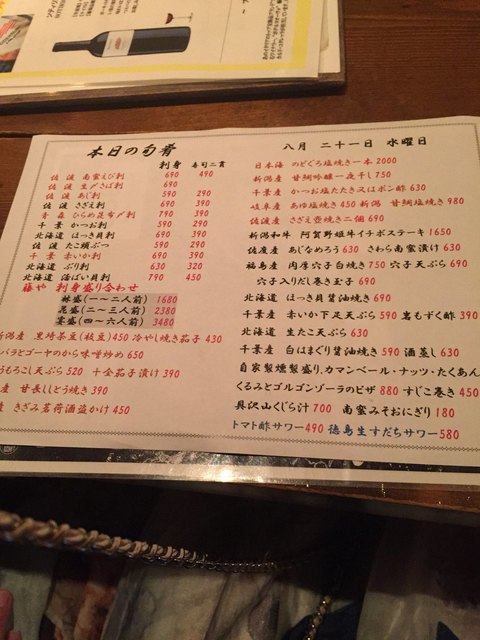 本日の旬肴
刺身 寿司二貫
佐渡 南蛮えび刺 690 490
佐渡 生〆さば刺 690
佐渡 あじ刺 590 290
佐渡 さざえ刺 690 390
青森 ひらめ昆布〆刺 790 390
千葉 かつお刺 590 290
北海道 ほっき貝刺 690 390
佐渡 たこ頭ぶつ 590 290
千葉 赤いか刺 690 390
北海道 ぶり刺 630 320
北海道 活ばい貝刺 790 450
藤や 刺身盛り合わせ
林盛(一〜二人前) 1680
花盛(二〜三人前) 2380
宴盛(四〜六人前) 3480
新潟産 黒埼茶豆(枝豆)450 冷やし焼き茄子 430
バラとゴーヤのから味噌炒め 650
うもろこし天ぷら 520 十全茄子漬け 390
産 甘長ししとう焼き 390
産 きざみ茗荷酒盗かけ 450
八月 二十一日 水曜日
日本海 のどぐろ塩焼き一本 2000
新潟産 甘鯛吟醸一夜干し 750
千葉産 かつお塩たたき又はポン酢 630
岐阜産 あゆ塩焼き 450 新潟 甘鯛塩焼き 980
佐渡産 さざえ壺焼き二個 690
新潟和牛 阿賀野姫牛イチボステーキ 1650
佐渡産 あじなめろう 630 さわら南蛮漬け 630
福島産 肉厚穴子白焼き 750 穴子天ぷら 690
穴子入りだし巻き玉子 690
北海道 ほっき貝醤油焼き 690
千葉産 赤いか下足天ぷら 590 岩もずく酢 390
北海道 生たこ天ぷら 630
千葉産 白はまぐり醤油焼き 590 酒蒸し 630
自家製燻製盛り、カマンベール・ナッツ・たくあん
くるみとゴルゴンゾーラのピザ 880 すじこ巻き 450
具沢山くじら汁 700 南蛮みそおにぎり 180
トマト酢サワー 490 徳島生すだちサワー 580